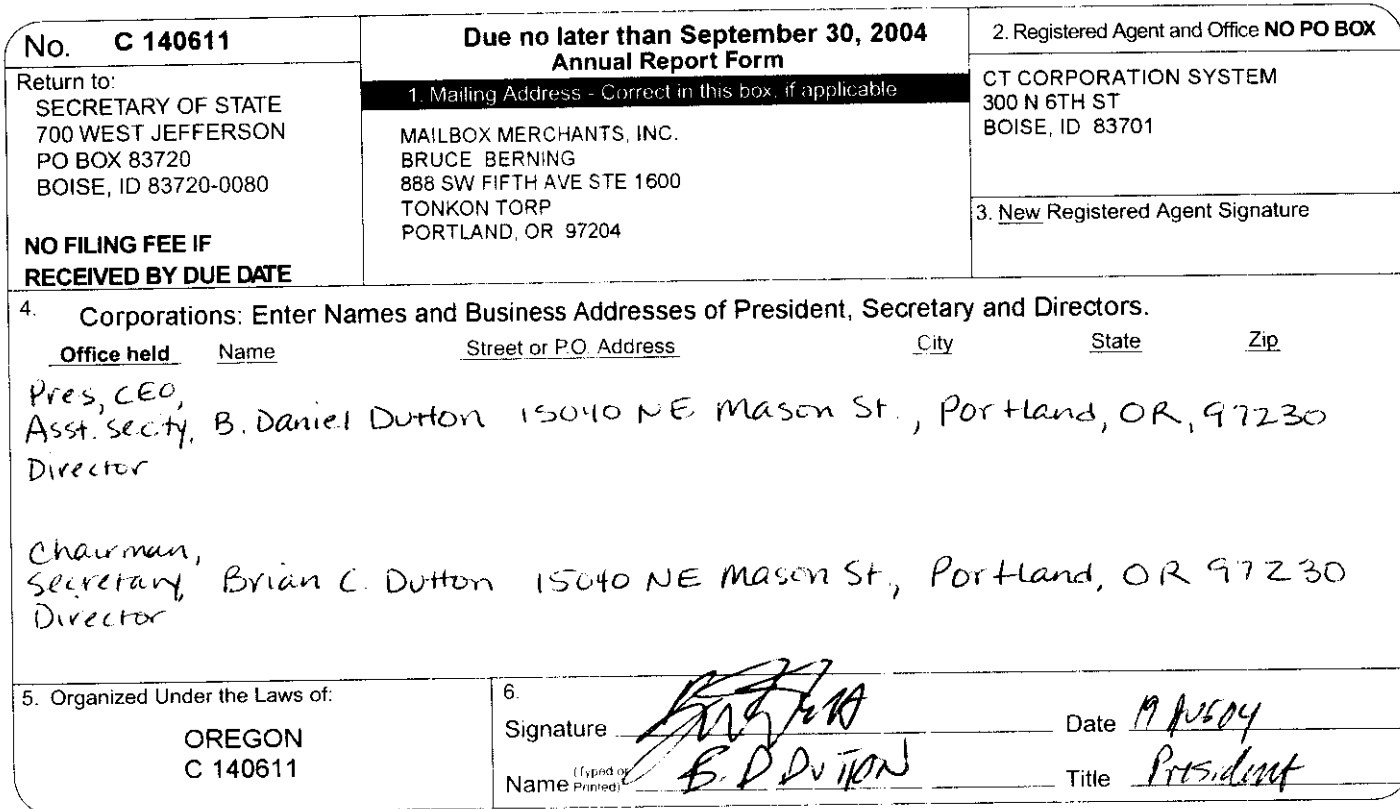 No. C 140611
Return to:
SECRETARY OF STATE
700 WEST JEFFERSON
PO BOX 83720
BOISE, ID 83720-0080
NO FILING FEE IF
RECEIVED BY DUE DATE
Due no later than September 30, 2004
Annual Report Form
1. Mailing Address - Correct in this box, if applicable
MAILBOX MERCHANTS, INC.
BRUCE BERNING
888 SW FIFTH AVE STE 1600
TONKON TORP
PORTLAND, OR 97204
2. Registered Agent and Office NO PO BOX
CT CORPORATION SYSTEM
300 N 6TH ST
BOISE, ID 83701
3. New Registered Agent Signature
4. Corporations: Enter Names and Business Addresses of President, Secretary and Directors.
Office held Name Street or P.O. Address City State Zip
Pres, CEO,
Asst. Sec'ty, B. Daniel Dutton 15040 NE Mason St., Portland, OR, 97230
Director
Chairman,
Secretary, Brian C. Dutton 15040 NE Mason St., Portland, OR 97230
Director
5. Organized Under the Laws of:
OREGON
C 140611
6.
Signature Date 19 AUG 04
Name (Typed or Printed) B. D DUTTON Title President